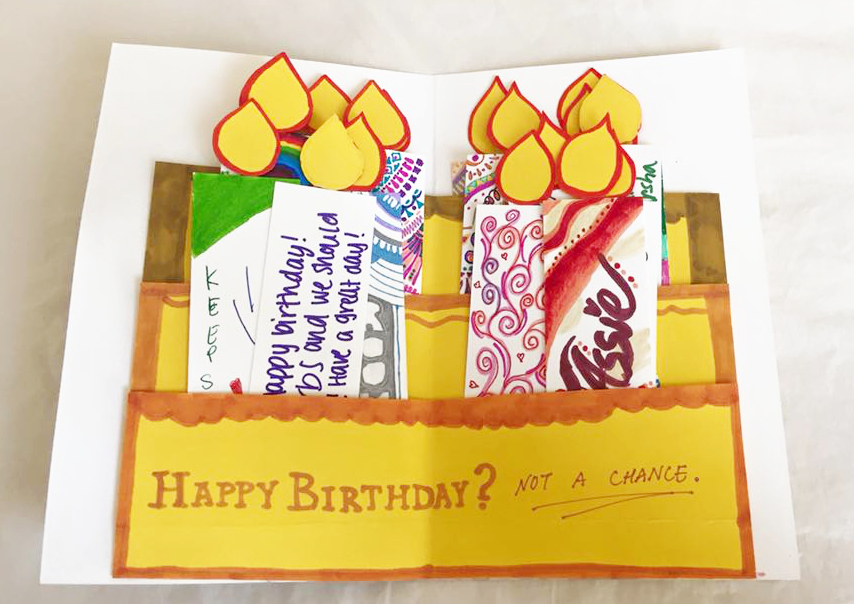 KEEP S
appy birthday!
bs and we should
Have a great day!
assie
isha
HAPPY BIRTHDAY? NOT A CHANCE.